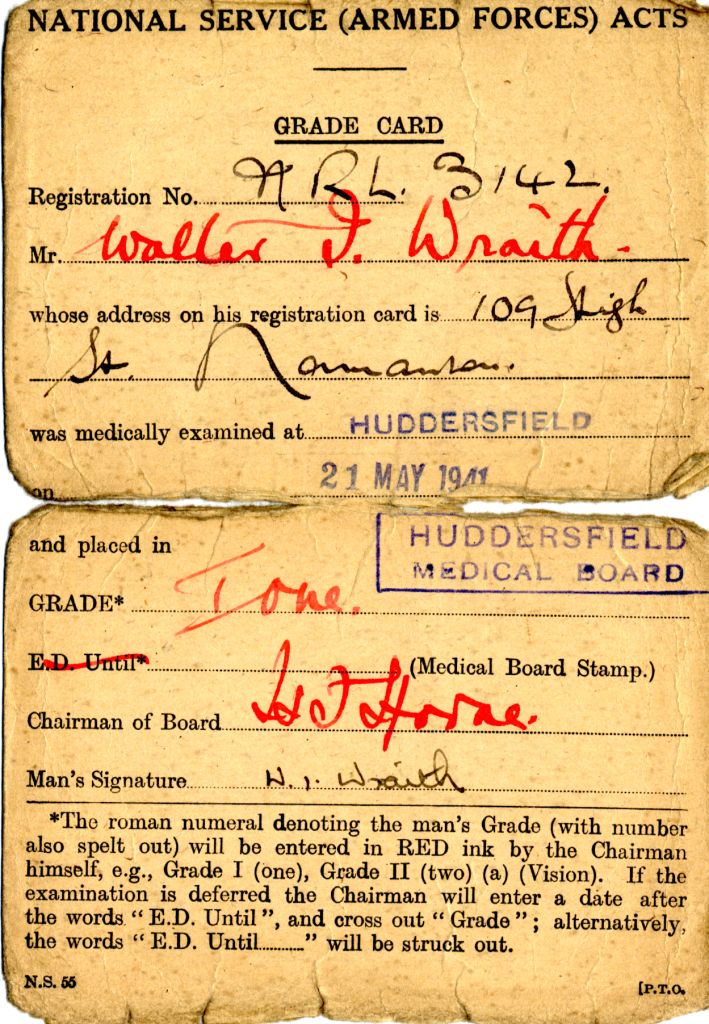 NATIONAL SERVICE (ARMED FORCES) ACTS
GRADE CARD
Registration No. NRL. 3142.
Mr. Walter I. Wraith.
whose address on his registration card is 109 High
St. Normanton.
was medically examined at HUDDERSFIELD
on 21 MAY 1941
and placed in
HUDDERSFIELD
MEDICAL BOARD
GRADE* I one.
E.D. Until* (Medical Board Stamp.)
Chairman of Board
Man's Signature W. I. Wraith
*The roman numeral denoting the man's Grade (with number
also spelt out) will be entered in RED ink by the Chairman
himself, e.g., Grade I (one), Grade II (two) (a) (Vision). If the
examination is deferred the Chairman will enter a date after
the words "E.D. Until", and cross out "Grade"; alternatively,
the words "E.D. Until.........." will be struck out.
N.S. 55
[P.T.O.